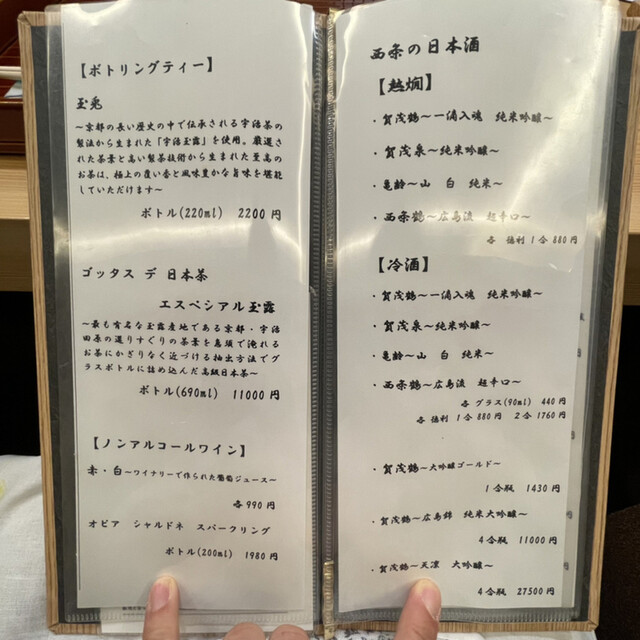 【ボトリングティー】
玉兎
～京都の長い歴史の中で伝承される宇治茶の
製法から生まれた「宇治玉露」を使用。厳選さ
れた茶葉と高い製茶技術から生まれた至高の
お茶は、極上の覆い香と風味豊かな旨味を堪能
していただけます～
ボトル(220ml) 2200円
ゴッタス デ 日本茶
エスペシアル玉露
～最も有名な玉露産地である京都・宇治
田原の選りすぐりの茶葉を急須で淹れる
お茶にかぎりなく近づける抽出方法でグ
ラスボトルに詰め込んだ高級日本茶～
ボトル(690ml) 11000円
【ノンアルコールワイン】
赤・白～ワイナリーで作られた葡萄ジュース～
各990円
オピア シャルドネ スパークリング
ボトル(200ml) 1980円
西条の日本酒
【熱燗】
・賀茂鶴～一滴入魂 純米吟醸～
・賀茂泉～純米吟醸～
・亀齢～山 白 純米～
・西条鶴～広島流 超辛口～
各 徳利1合880円
【冷酒】
・賀茂鶴～一滴入魂 純米吟醸～
・賀茂泉～純米吟醸～
・亀齢～山 白 純米～
・西条鶴～広島流 超辛口～
各 グラス(90ml) 440円
各 徳利 1合880円 2合1760円
・賀茂鶴～大吟醸ゴールド～
1合瓶 1430円
・賀茂鶴～広島錦 純米大吟醸～
4合瓶 11000円
・賀茂鶴～天凛 大吟醸～
4合瓶 27500円